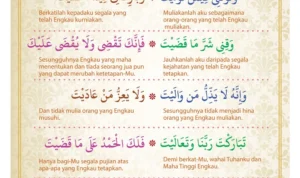 Muliakanlah aku sebagaimana
orang-orang yang telah Engkau
muliakan.
Berkatilah kepadaku segala yang
telah Engkau kurniakan.
وَقِنِي شَرَّ مَا قَضَيْتَ
Jauhkanlah aku daripada segala
kejahatan yang telah Engkau
tetapkan.
فَإِنَّكَ تَقْضِي وَلَا يُقْضَى عَلَيْكَ
Sesungguhnya Engkau yang maha
menentukan dan tiada seorang jua pun
yang dapat merubah ketetapan-Mu.
وَإِنَّهُ لَا يَذِلُّ مَنْ وَالَيْتَ
Sesungguhnya tidak menjadi hina
orang yang Engkau muliakan.
وَلَا يَعِزُّ مَنْ عَادَيْتَ
Dan tidak mulia orang yang Engkau
musuhi.
تَبَارَكْتَ رَبَّنَا وَتَعَالَيْتَ
Demi berkat-Mu, wahai Tuhanku dan
Maha Tinggi Engkau.
فَلَكَ الْحَمْدُ عَلَى مَا قَضَيْتَ
Hanya bagi-Mu segala pujian atas
apa-apa yang Engkau tetapkan.